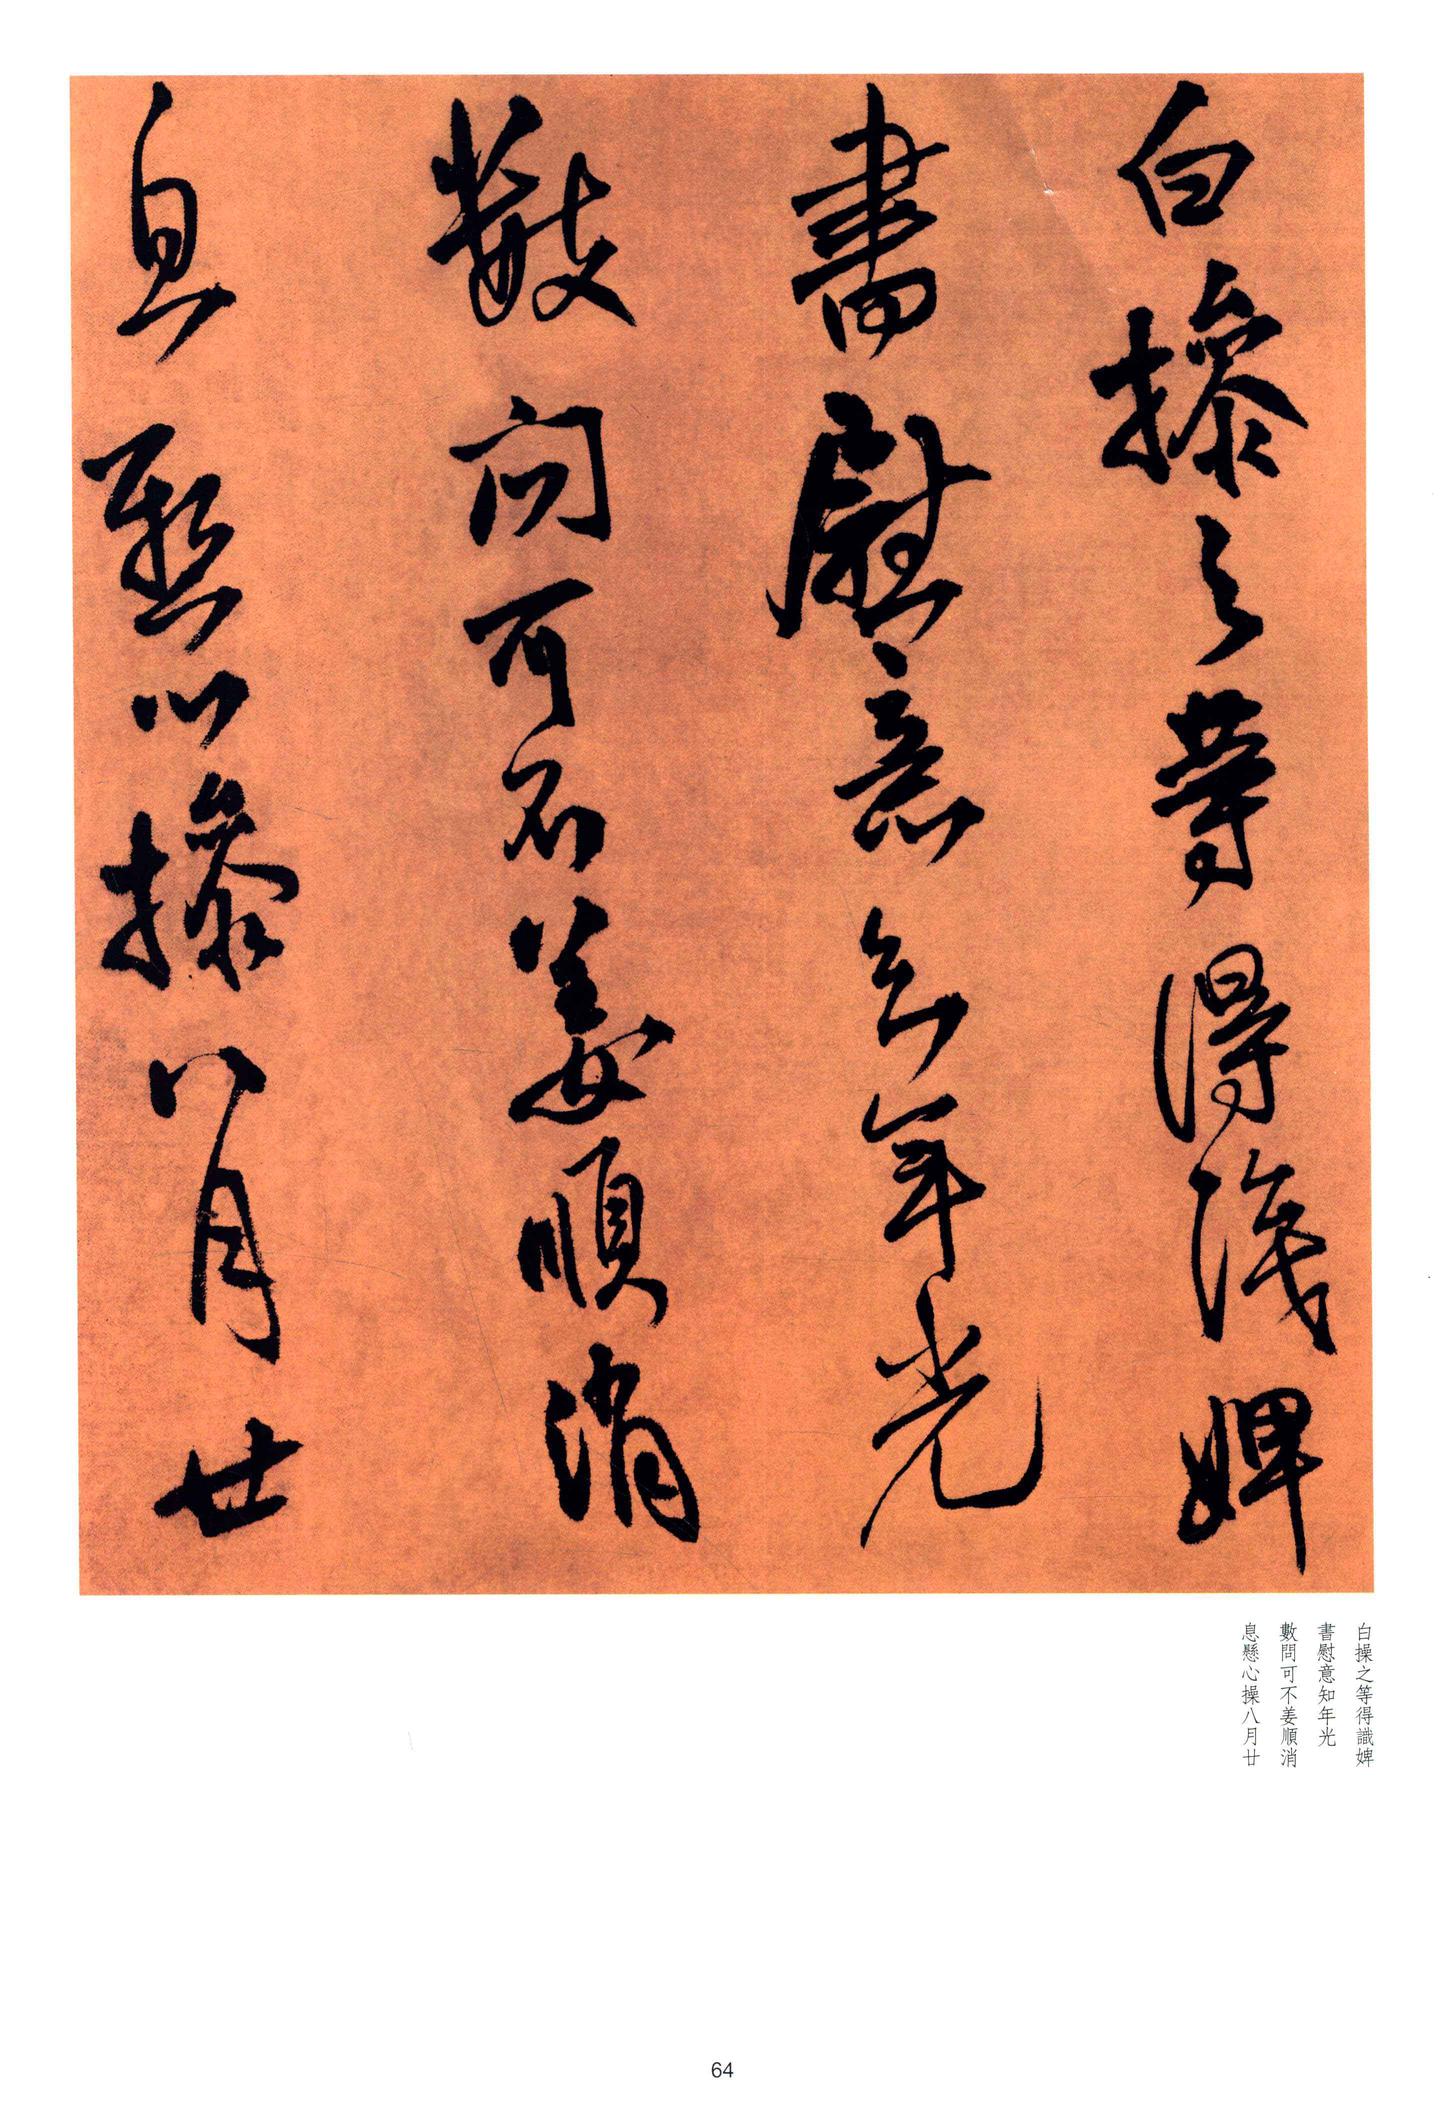 白操之等得識婢
書慰意知年光
數問可不姜順消
息懸心操八月廿
白操之等得識婢
書慰意知年光
數問可不姜順消
息懸心操八月廿
64